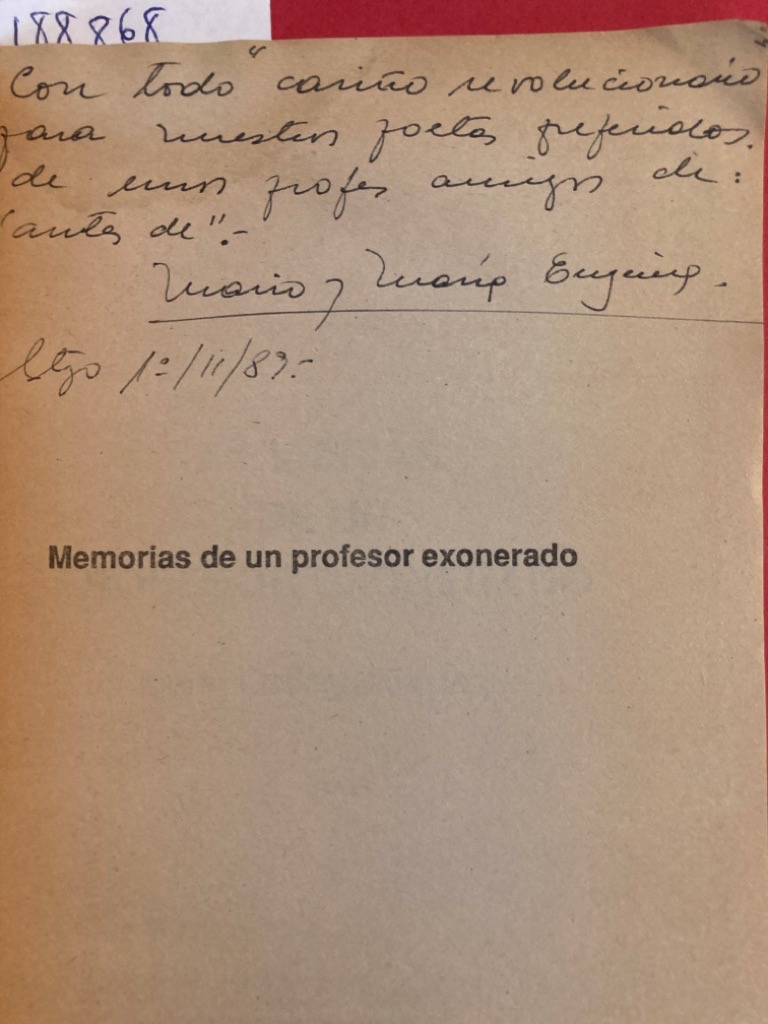 188868
Con todo "cariño revolucionario
para nuestros poetas preferidos.
de unos profes amigos de:
"antes de".-
Mario y María Eugenia.
Stgo 1º/11/89.-
Memorias de un profesor exonerado